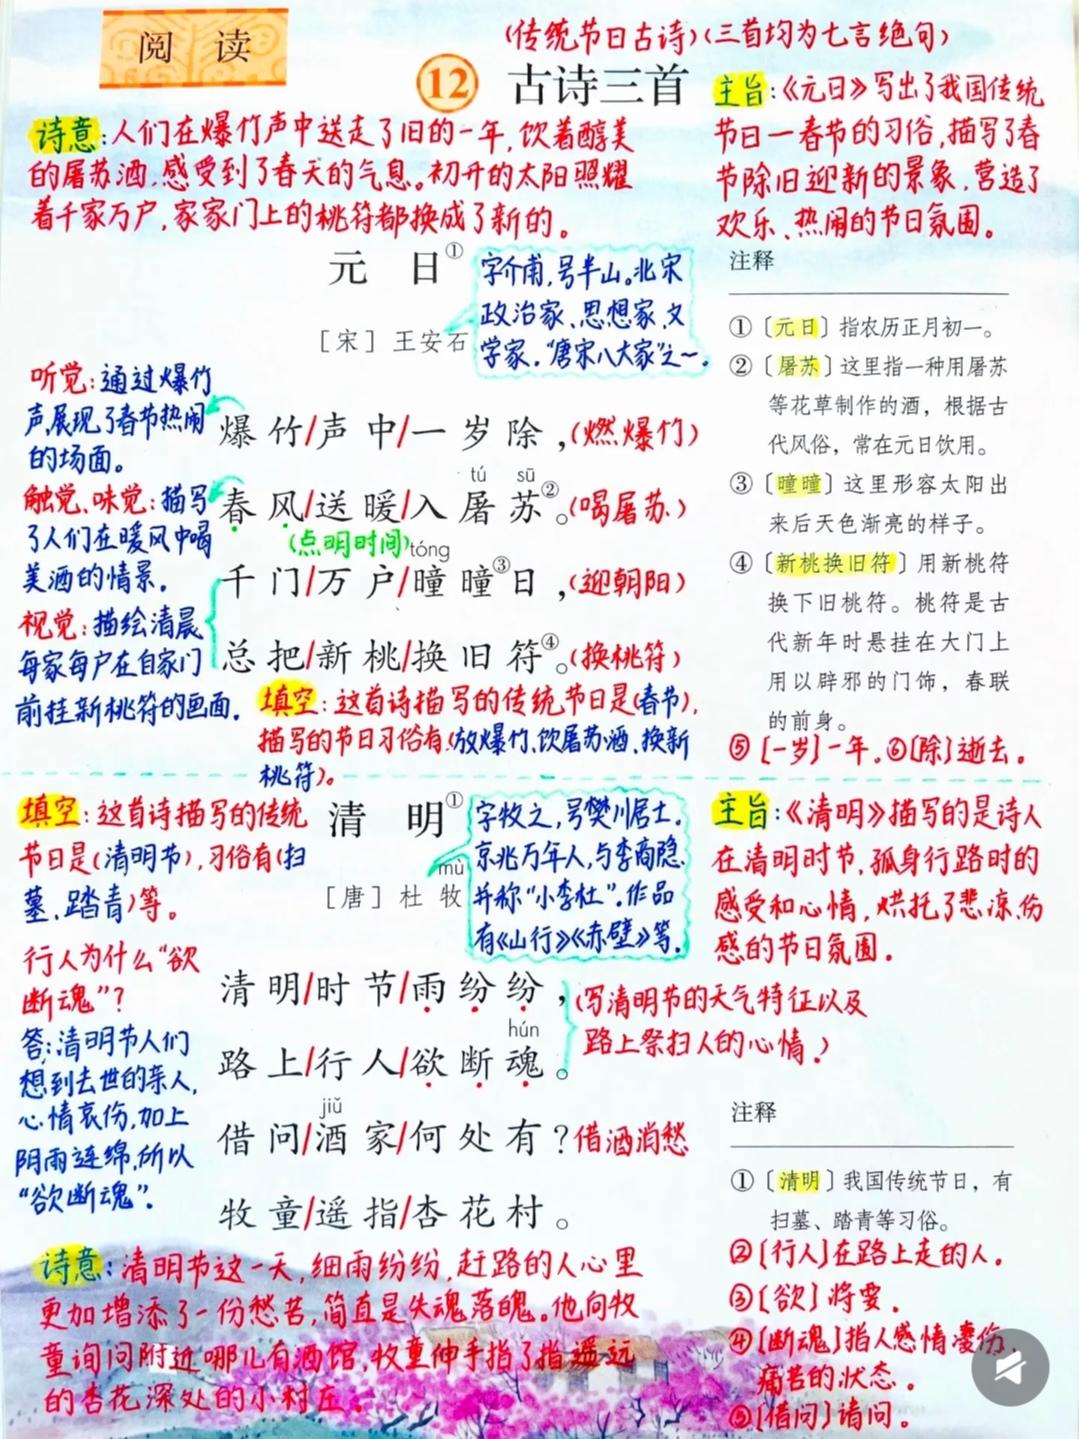 阅 读
(传统节日古诗)(三首均为七言绝句)
12 古诗三首
诗意:人们在爆竹声中送走了旧的一年,饮着醇美
的屠苏酒,感受到了春天的气息。初升的太阳照耀
着千家万户,家家门上的桃符都换成了新的。
主旨:《元日》写出了我国传统
节日一春节的习俗,描写了春
节除旧迎新的景象,营造了
欢乐、热闹的节日氛围。
元 日①
[宋] 王安石
字介甫,号半山。北宋
政治家、思想家、文
学家。“唐宋八大家”之一。
听觉:通过爆竹
声,展现了春节热闹
的场面。
触觉、味觉:描写
了人们在暖风中喝
美酒的情景。
视觉:描绘清晨
每家每户在自家门
前挂新桃符的画面。
爆竹/声中/一岁除,(燃爆竹)
tú sū
春风/送暖/入屠苏②。(喝屠苏)
(点明时间)
tóng
千门/万户/曈曈③日,(迎朝阳)
总把/新桃/换旧符④。(换桃符)
填空:这首诗描写的传统节日是(春节),
描写的节日习俗有(放爆竹、饮屠苏酒、换新
桃符)。
注释
①〔元日〕指农历正月初一。
②〔屠苏〕这里指一种用屠苏
等花草制作的酒,根据古
代风俗,常在元日饮用。
③〔曈曈〕这里形容太阳出
来后天色渐亮的样子。
④〔新桃换旧符〕用新桃符
换下旧桃符。桃符是古
代新年时悬挂在大门上
用以辟邪的门饰,春联
的前身。
⑤〔一岁〕一年。⑥〔除〕逝去。
填空:这首诗描写的传统
节日是(清明节),习俗有(扫
墓、踏青)等。
行人为什么“欲
断魂”?
答:清明节人们
想到去世的亲人,
心情哀伤,加上
阴雨连绵,所以
“欲断魂”。
清 明①
mù
[唐] 杜 牧
字牧之,号樊川居士。
京兆万年人,与李商隐
并称“小李杜”。作品
有《山行》《赤壁》等。
主旨:《清明》描写的是诗人
在清明时节,孤身行路时的
感受和心情,烘托了悲凉、伤
感的节日氛围。
清明/时节/雨纷纷,
hún
路上/行人/欲断魂。
(写清明节的天气特征以及
路上祭扫人的心情。)
jiǔ
借问/酒家/何处有?借酒消愁
牧童/遥指/杏花村。
诗意:清明节这一天,细雨纷纷,赶路的人心里
更加增添了一份愁苦,简直是失魂落魄。他向牧
童询问附近哪儿有酒馆,牧童伸手指了指遥远
的杏花深处的小村庄。
注释
①〔清明〕我国传统节日,有
扫墓、踏青等习俗。
②〔行人〕在路上走的人。
③〔欲〕将要。
④〔断魂〕指人感情凄伤、
痛苦的状态。
⑤〔借问〕请问。